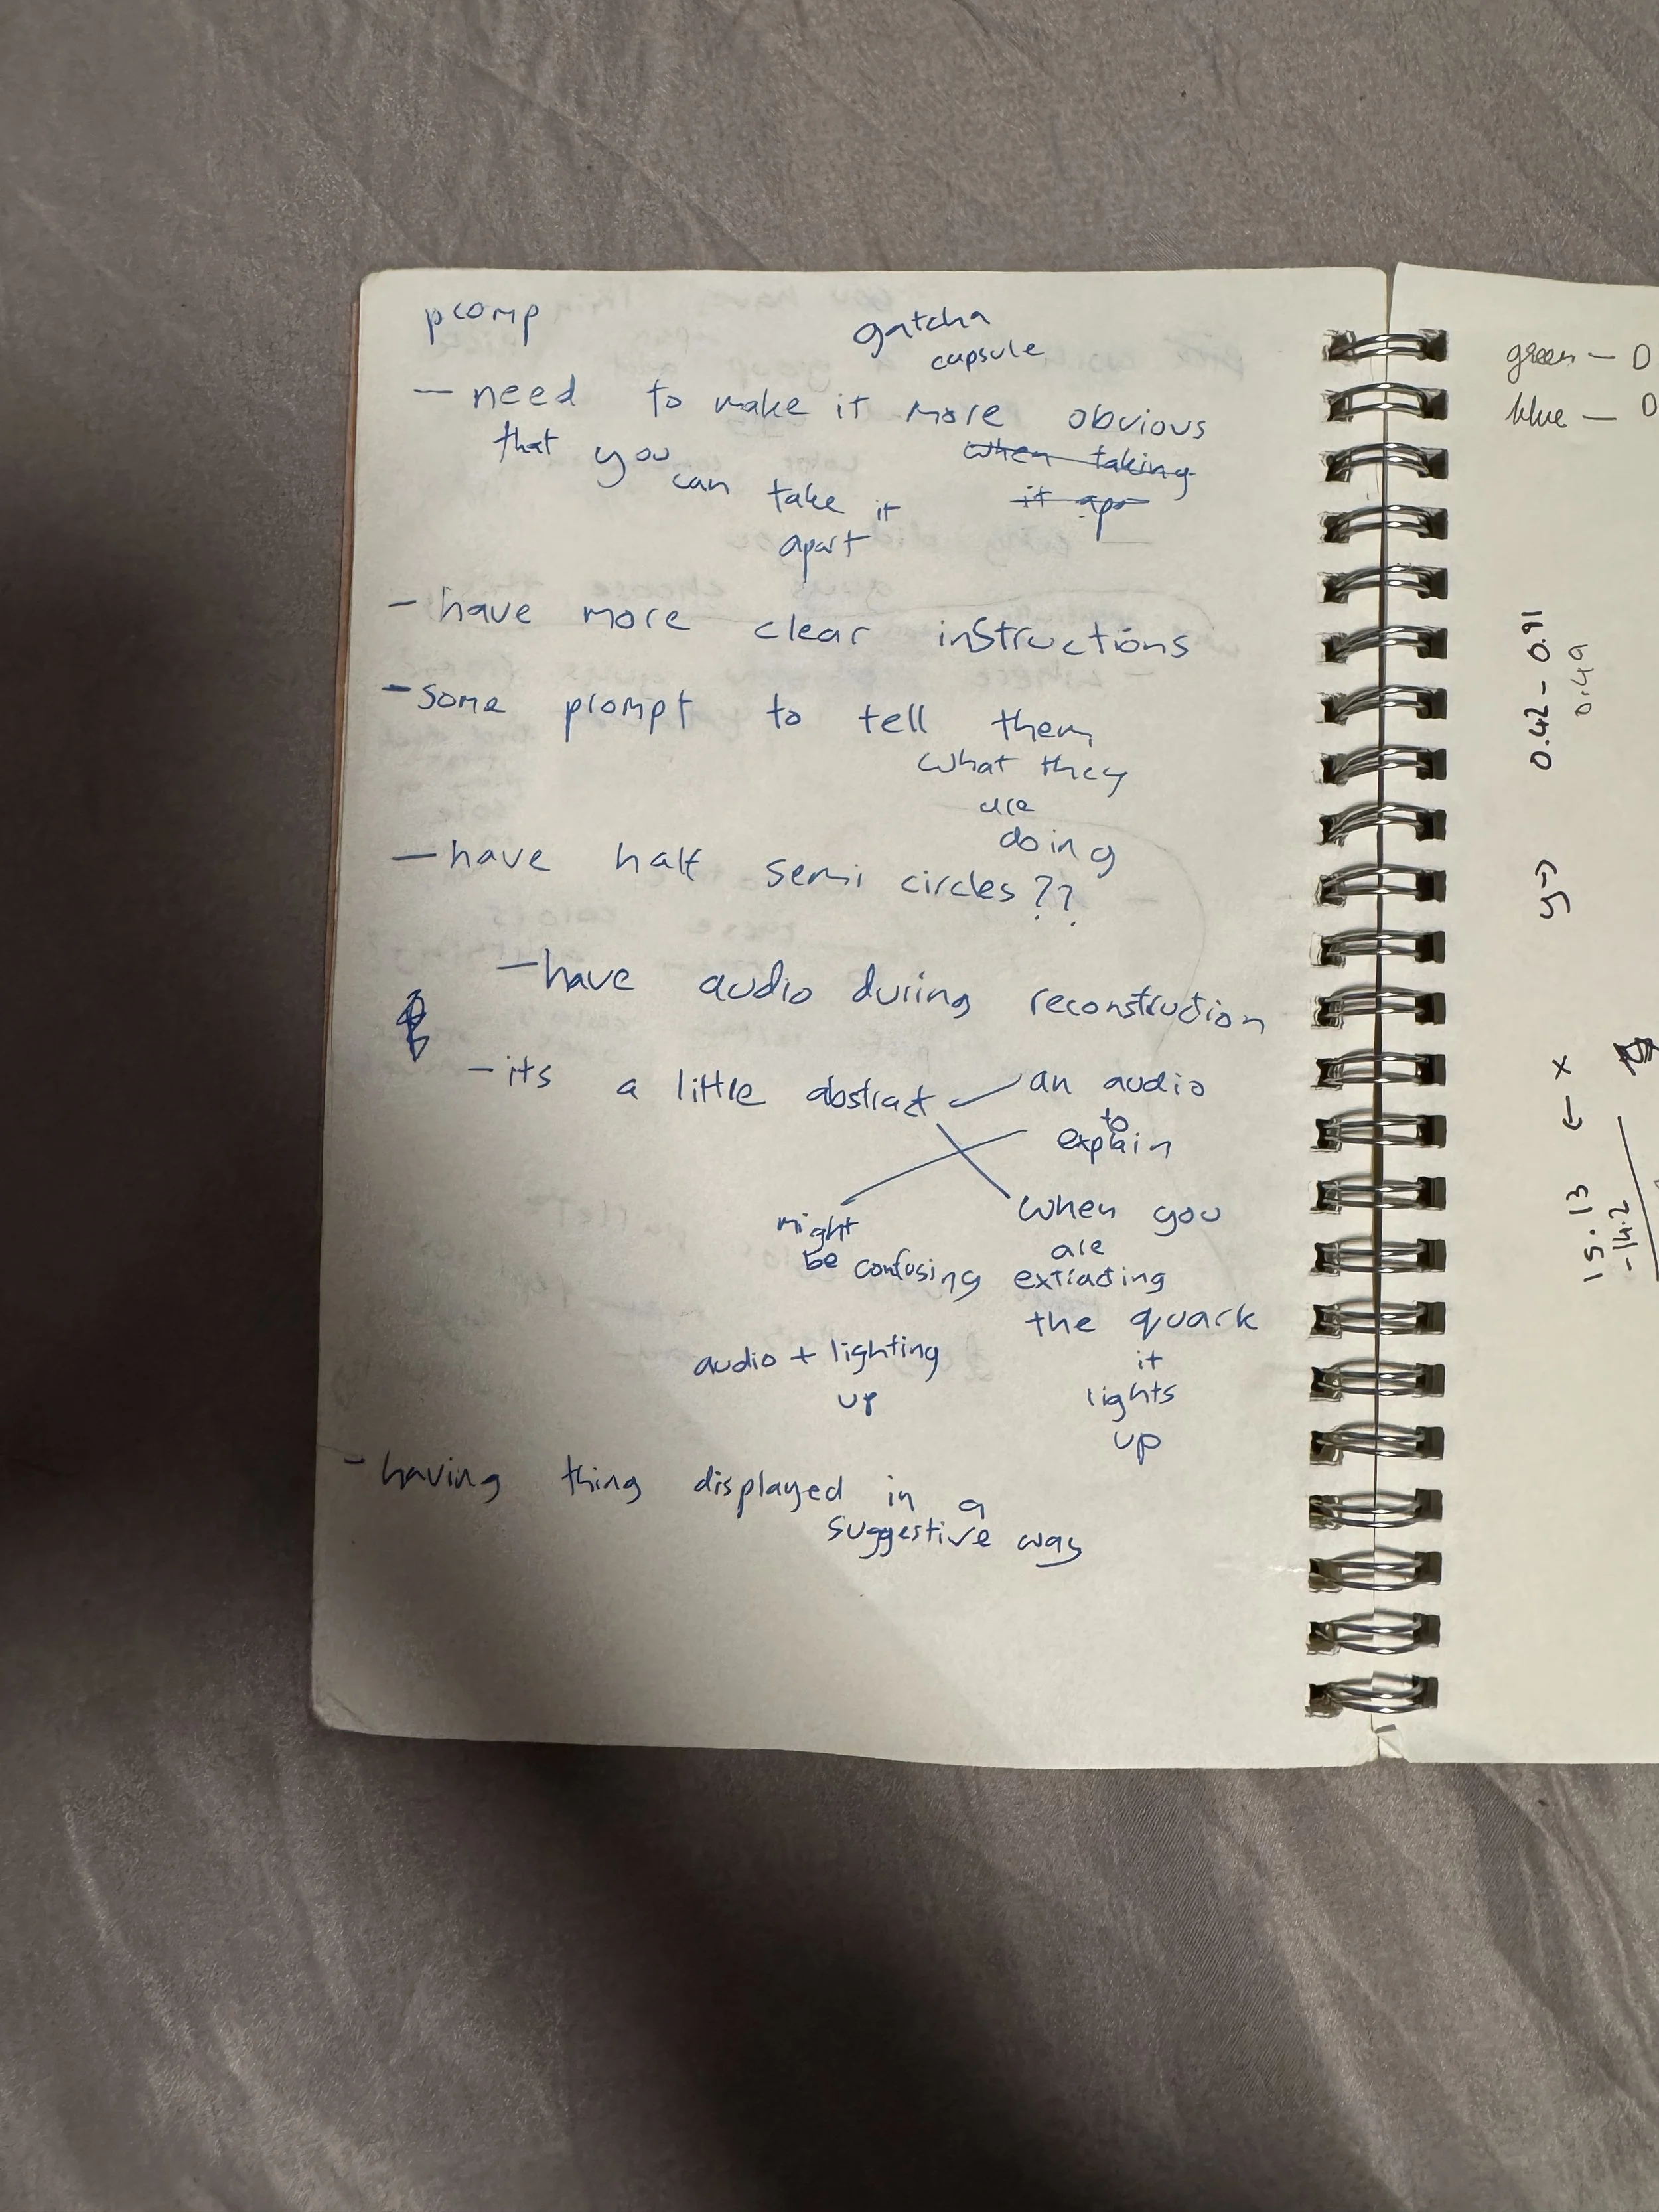 pcomp
gatcha
capsule
- need to make it more obvious
that you can take it
apart
when taking
it ap
- have more clear instructions
- some prompt to tell them
what they
are
doing
- have half semi circles??
- have audio during reconstruction
- its a little abstract
an audio
to
explain
might
be confusing
when you
are
extracting
the quark
it
lights
up
audio + lighting
up
- having thing displayed in a
suggestive way
green - 0
blue - 0
0.42 - 0.91
0.49
y→
← x
15.13
-14.2